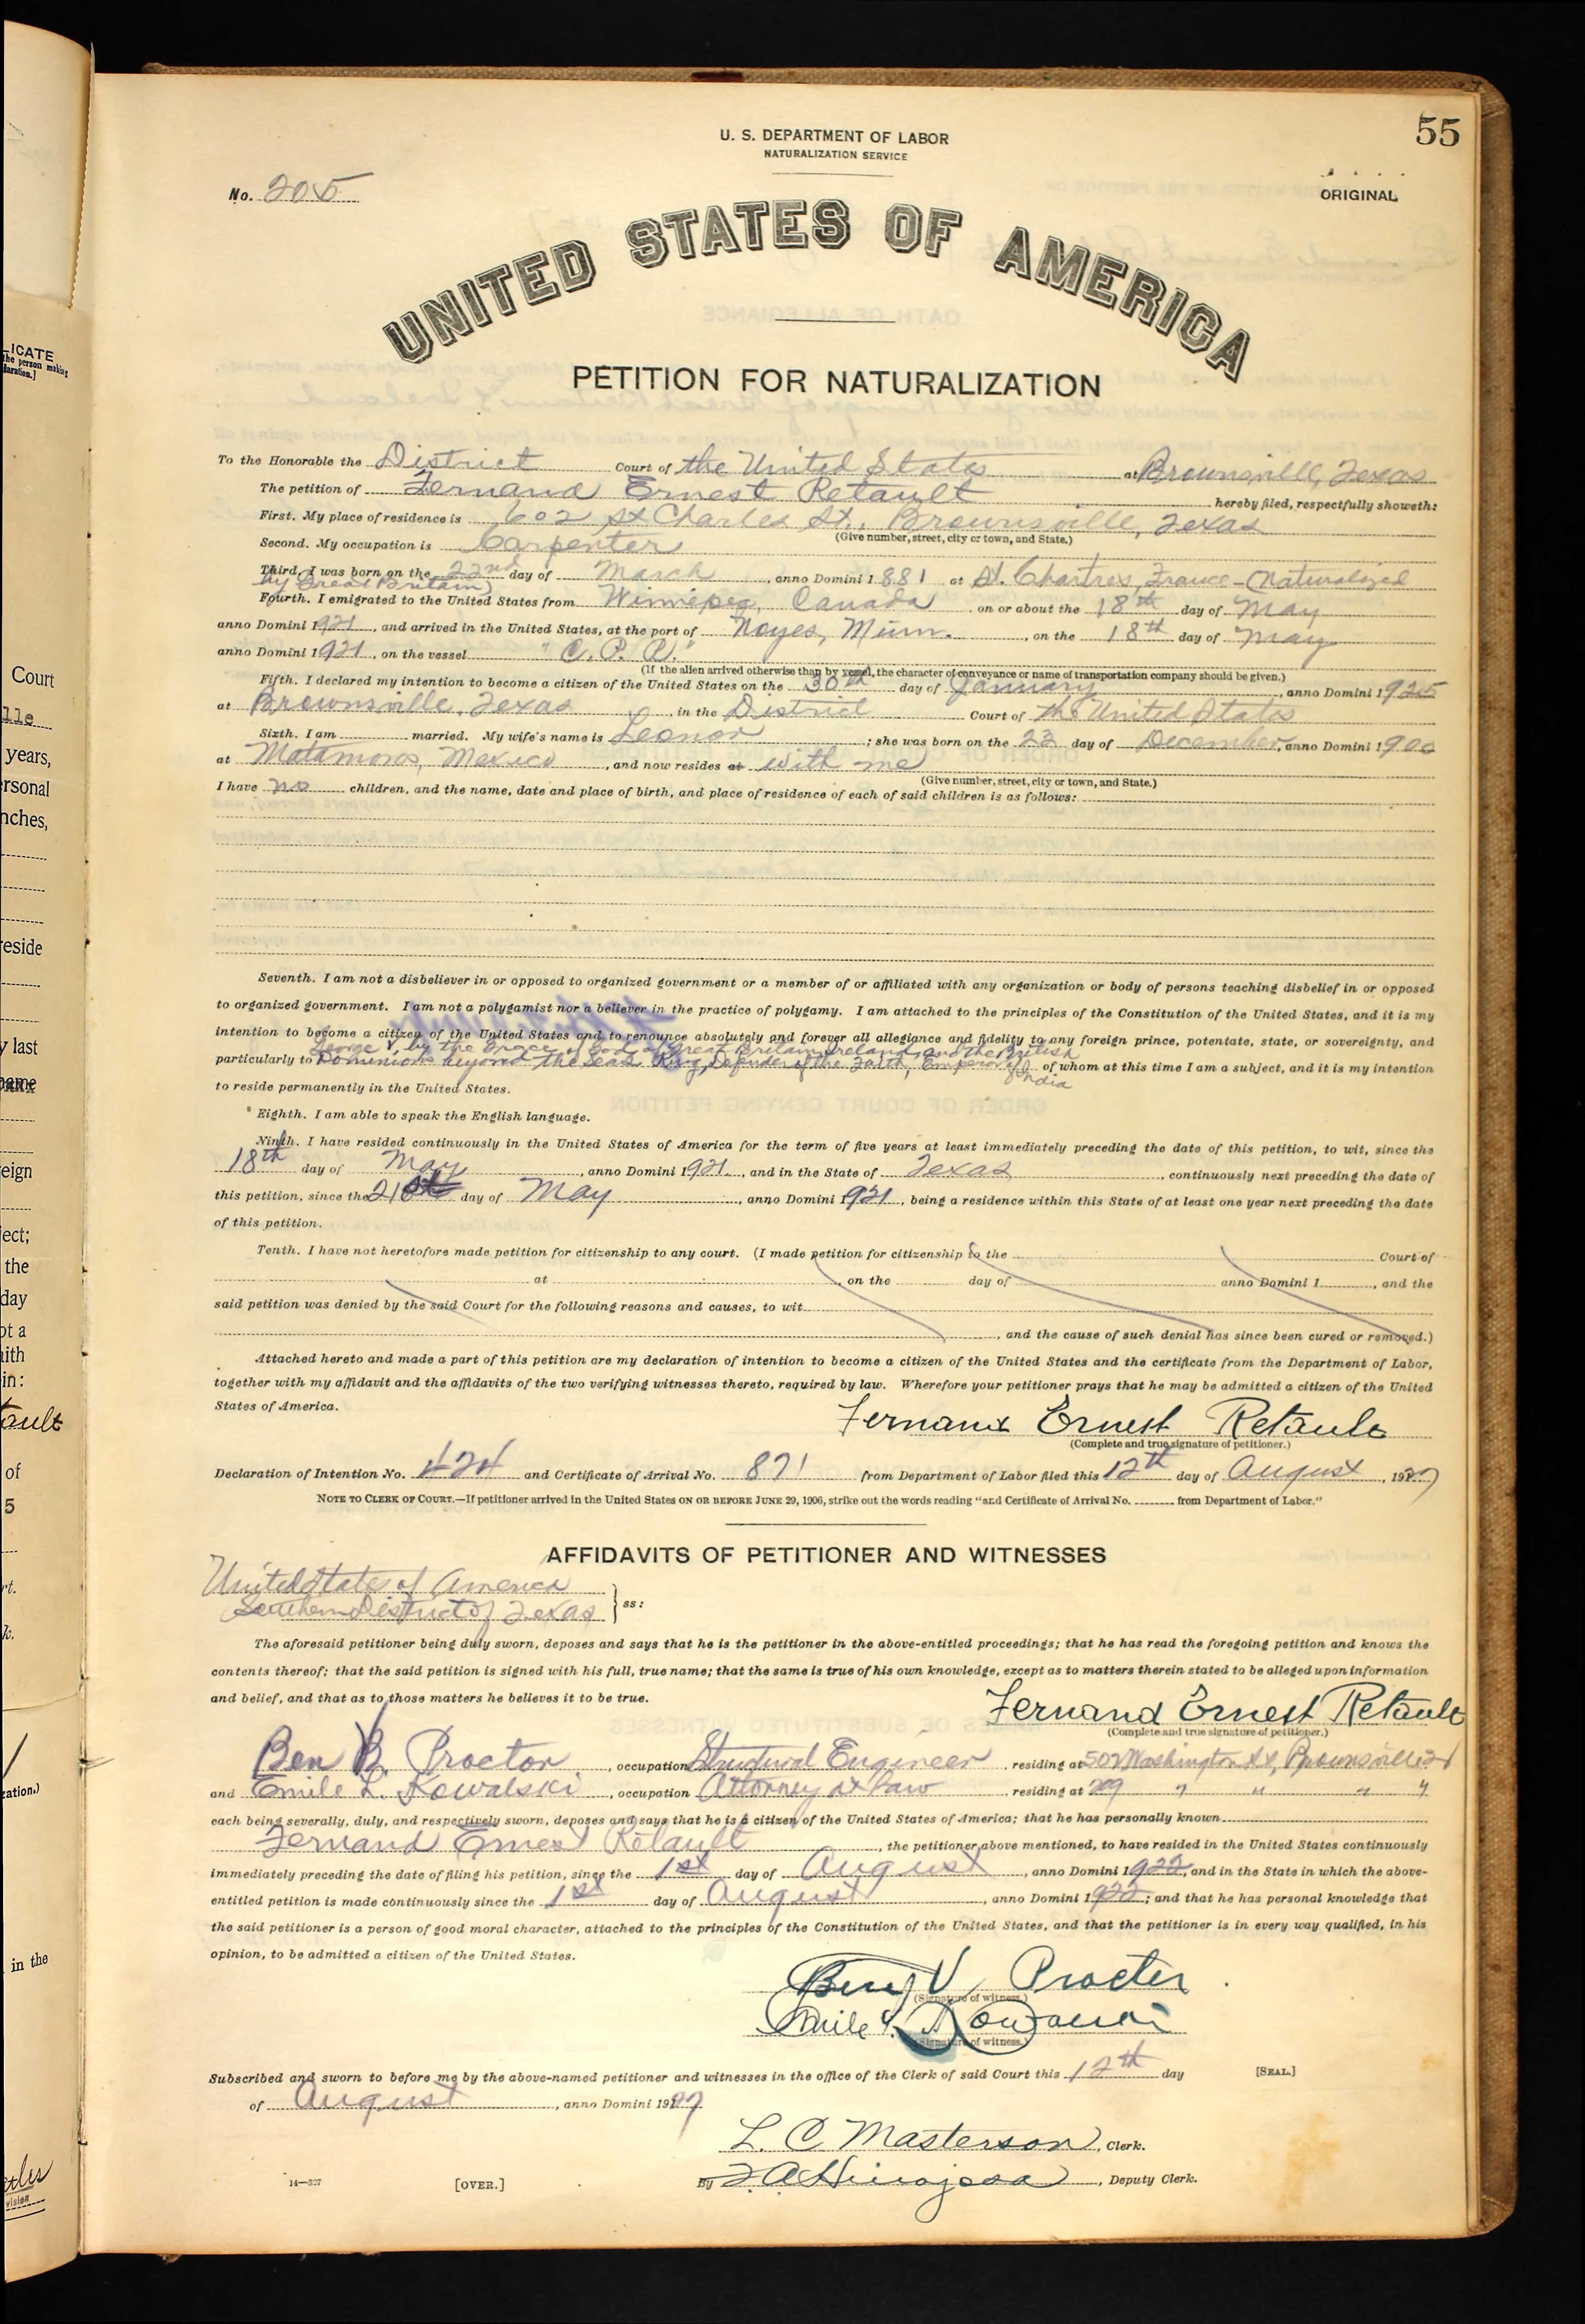 55
U. S. DEPARTMENT OF LABOR
NATURALIZATION SERVICE
No. 205
ORIGINAL
UNITED STATES OF AMERICA
PETITION FOR NATURALIZATION
To the Honorable the District Court of the United States at Brownsville, Texas
The petition of Fernand Ernest Retault hereby filed, respectfully showeth:
First. My place of residence is 602 St Charles St., Brownsville, Texas
(Give number, street, city or town, and State.)
Second. My occupation is Carpenter
Third. I was born on the 22nd day of March, anno Domini 1881 at St. Chartres, France - (Naturalized
by Great Britain)
Fourth. I emigrated to the United States from Winnipeg, Canada, on or about the 18th day of May
anno Domini 1921, and arrived in the United States, at the port of Noyes, Minn., on the 18th day of May
anno Domini 1921, on the vessel "C. P. R."
(If the alien arrived otherwise than by vessel, the character of conveyance or name of transportation company should be given.)
Fifth. I declared my intention to become a citizen of the United States on the 30th day of January, anno Domini 1925
at Brownsville, Texas, in the District Court of the United States
Sixth. I am married. My wife's name is Leonor; she was born on the 22 day of December, anno Domini 1900
at Matamoros, Mexico, and now resides at with me
(Give number, street, city or town, and State.)
I have no children, and the name, date and place of birth, and place of residence of each of said children is as follows:
Seventh. I am not a disbeliever in or opposed to organized government or a member of or affiliated with any organization or body of persons teaching disbelief in or opposed
to organized government. I am not a polygamist nor a believer in the practice of polygamy. I am attached to the principles of the Constitution of the United States, and it is my
intention to become a citizen of the United States and to renounce absolutely and forever all allegiance and fidelity to any foreign prince, potentate, state, or sovereignty, and
George V, by the Grace of God of Great Britain, Ireland, and the British
particularly to Dominions beyond the Seas King, Defender of the Faith, Emperor of India of whom at this time I am a subject, and it is my intention
to reside permanently in the United States.
Eighth. I am able to speak the English language.
Ninth. I have resided continuously in the United States of America for the term of five years at least immediately preceding the date of this petition, to wit, since the
18th day of May, anno Domini 1921, and in the State of Texas, continuously next preceding the date of
this petition, since the 21st day of May, anno Domini 1921, being a residence within this State of at least one year next preceding the date
of this petition.
Tenth. I have not heretofore made petition for citizenship to any court. (I made petition for citizenship to the Court of
at , on the day of anno Domini 1 , and the
said petition was denied by the said Court for the following reasons and causes, to wit
, and the cause of such denial has since been cured or removed.)
Attached hereto and made a part of this petition are my declaration of intention to become a citizen of the United States and the certificate from the Department of Labor,
together with my affidavit and the affidavits of the two verifying witnesses thereto, required by law. Wherefore your petitioner prays that he may be admitted a citizen of the United
States of America.
Fernand Ernest Retault
(Complete and true signature of petitioner.)
Declaration of Intention No. 424 and Certificate of Arrival No. 871 from Department of Labor filed this 12th day of August, 1927
NOTE TO CLERK OF COURT.—If petitioner arrived in the United States ON OR BEFORE JUNE 29, 1906, strike out the words reading "and Certificate of Arrival No. from Department of Labor."
AFFIDAVITS OF PETITIONER AND WITNESSES
United States of America
Southern District of Texas } ss:
The aforesaid petitioner being duly sworn, deposes and says that he is the petitioner in the above-entitled proceedings; that he has read the foregoing petition and knows the
contents thereof; that the said petition is signed with his full, true name; that the same is true of his own knowledge, except as to matters therein stated to be alleged upon information
and belief, and that as to those matters he believes it to be true.
Fernand Ernest Retault
(Complete and true signature of petitioner.)
Ben V. Proctor, occupation Structural Engineer, residing at 502 Washington St, Brownsville
and Emile L. Kowalski, occupation Attorney at Law, residing at 209 " " " "
each being severally, duly, and respectively sworn, deposes and says that he is a citizen of the United States of America; that he has personally known
Fernand Ernest Retault, the petitioner above mentioned, to have resided in the United States continuously
immediately preceding the date of filing his petition, since the 1st day of August, anno Domini 1922, and in the State in which the above-
entitled petition is made continuously since the 1st day of August, anno Domini 1922; and that he has personal knowledge that
the said petitioner is a person of good moral character, attached to the principles of the Constitution of the United States, and that the petitioner is in every way qualified, in his
opinion, to be admitted a citizen of the United States.
Ben V. Procter
(Signature of witness.)
Emile L. Kowalski
(Signature of witness.)
Subscribed and sworn to before me by the above-named petitioner and witnesses in the office of the Clerk of said Court this 12th day [SEAL.]
of August, anno Domini 1927
L. C. Masterson, Clerk.
14—327 [OVER.] By F. A. Hinojosa, Deputy Clerk.